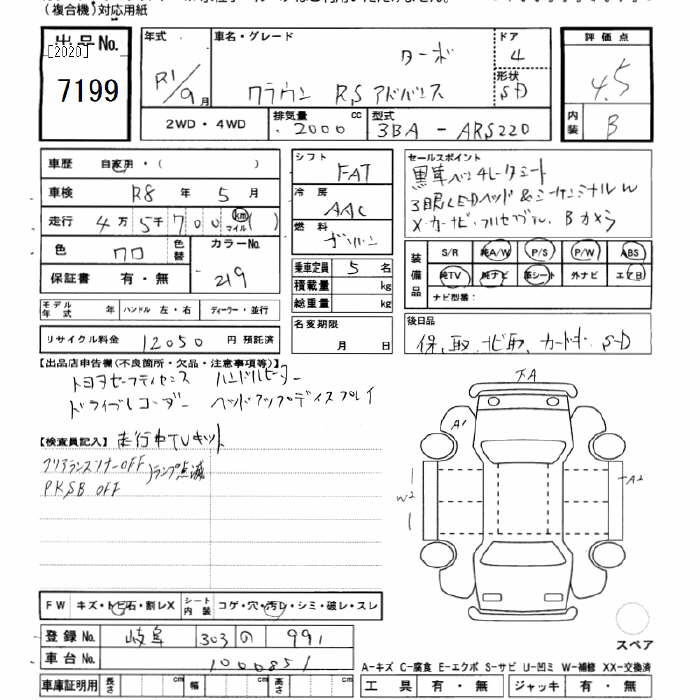 (複合機)対応用紙
出品No.
[2020]
7199
年式 R1/9月
車名・グレード ターボ
クラウン RSアドバンス
ドア 4
形状 SD
評価点 4.5
内装 B
2WD・4WD
排気量 2000 cc
型式 3BA-ARS220
車歴 自家用・( )
車検 R8年5月
走行 4万5千700 km マイル ( )
色 クロ
色替
カラーNo. 219
保証書 有・無
モデル年式 年
ハンドル 左・右
ディーラー・並行
リサイクル料金 12050 円 預託済
シフト FAT
冷房 AAC
燃料 ガソリン
乗車定員 5名
積載量 kg
総重量 kg
名変期限 月 日
セールスポイント
黒革ベンチレータシート
3眼LEDヘッド&シーケンシャルW
メーカーナビ・フルセグTV. Bカメラ
装備品
S/R 純A/W P/S P/W ABS
純TV 純ナビ 革シート 外ナビ エアB
ナビ型番:
後日品
保、取、ナビ取、カードキ、S-D
【出品店申告欄(不良箇所・欠品・注意事項等)】
トヨタセーフティセンス ハンドルヒーター
ドライブレコーダー ヘッドアップディスプレイ
【検査員記入】 走行中TVキット
クリアランスソナーOFF
PKSB OFF
ランプ点滅
A1
W2
A2
FW キズ・トビ石・割レX
シート内装 コゲ・穴・汚レ・シミ・破レ・スレ
登録No. 岐阜 303 の 991
車台No. 1000851
車庫証明用 長さ cm 幅 cm 高さ cm
スペア
A-キズ C-腐食 E-エクボ S-サビ U-凹ミ W-補修 XX-交換済
工具 有・無 ジャッキ 有・無